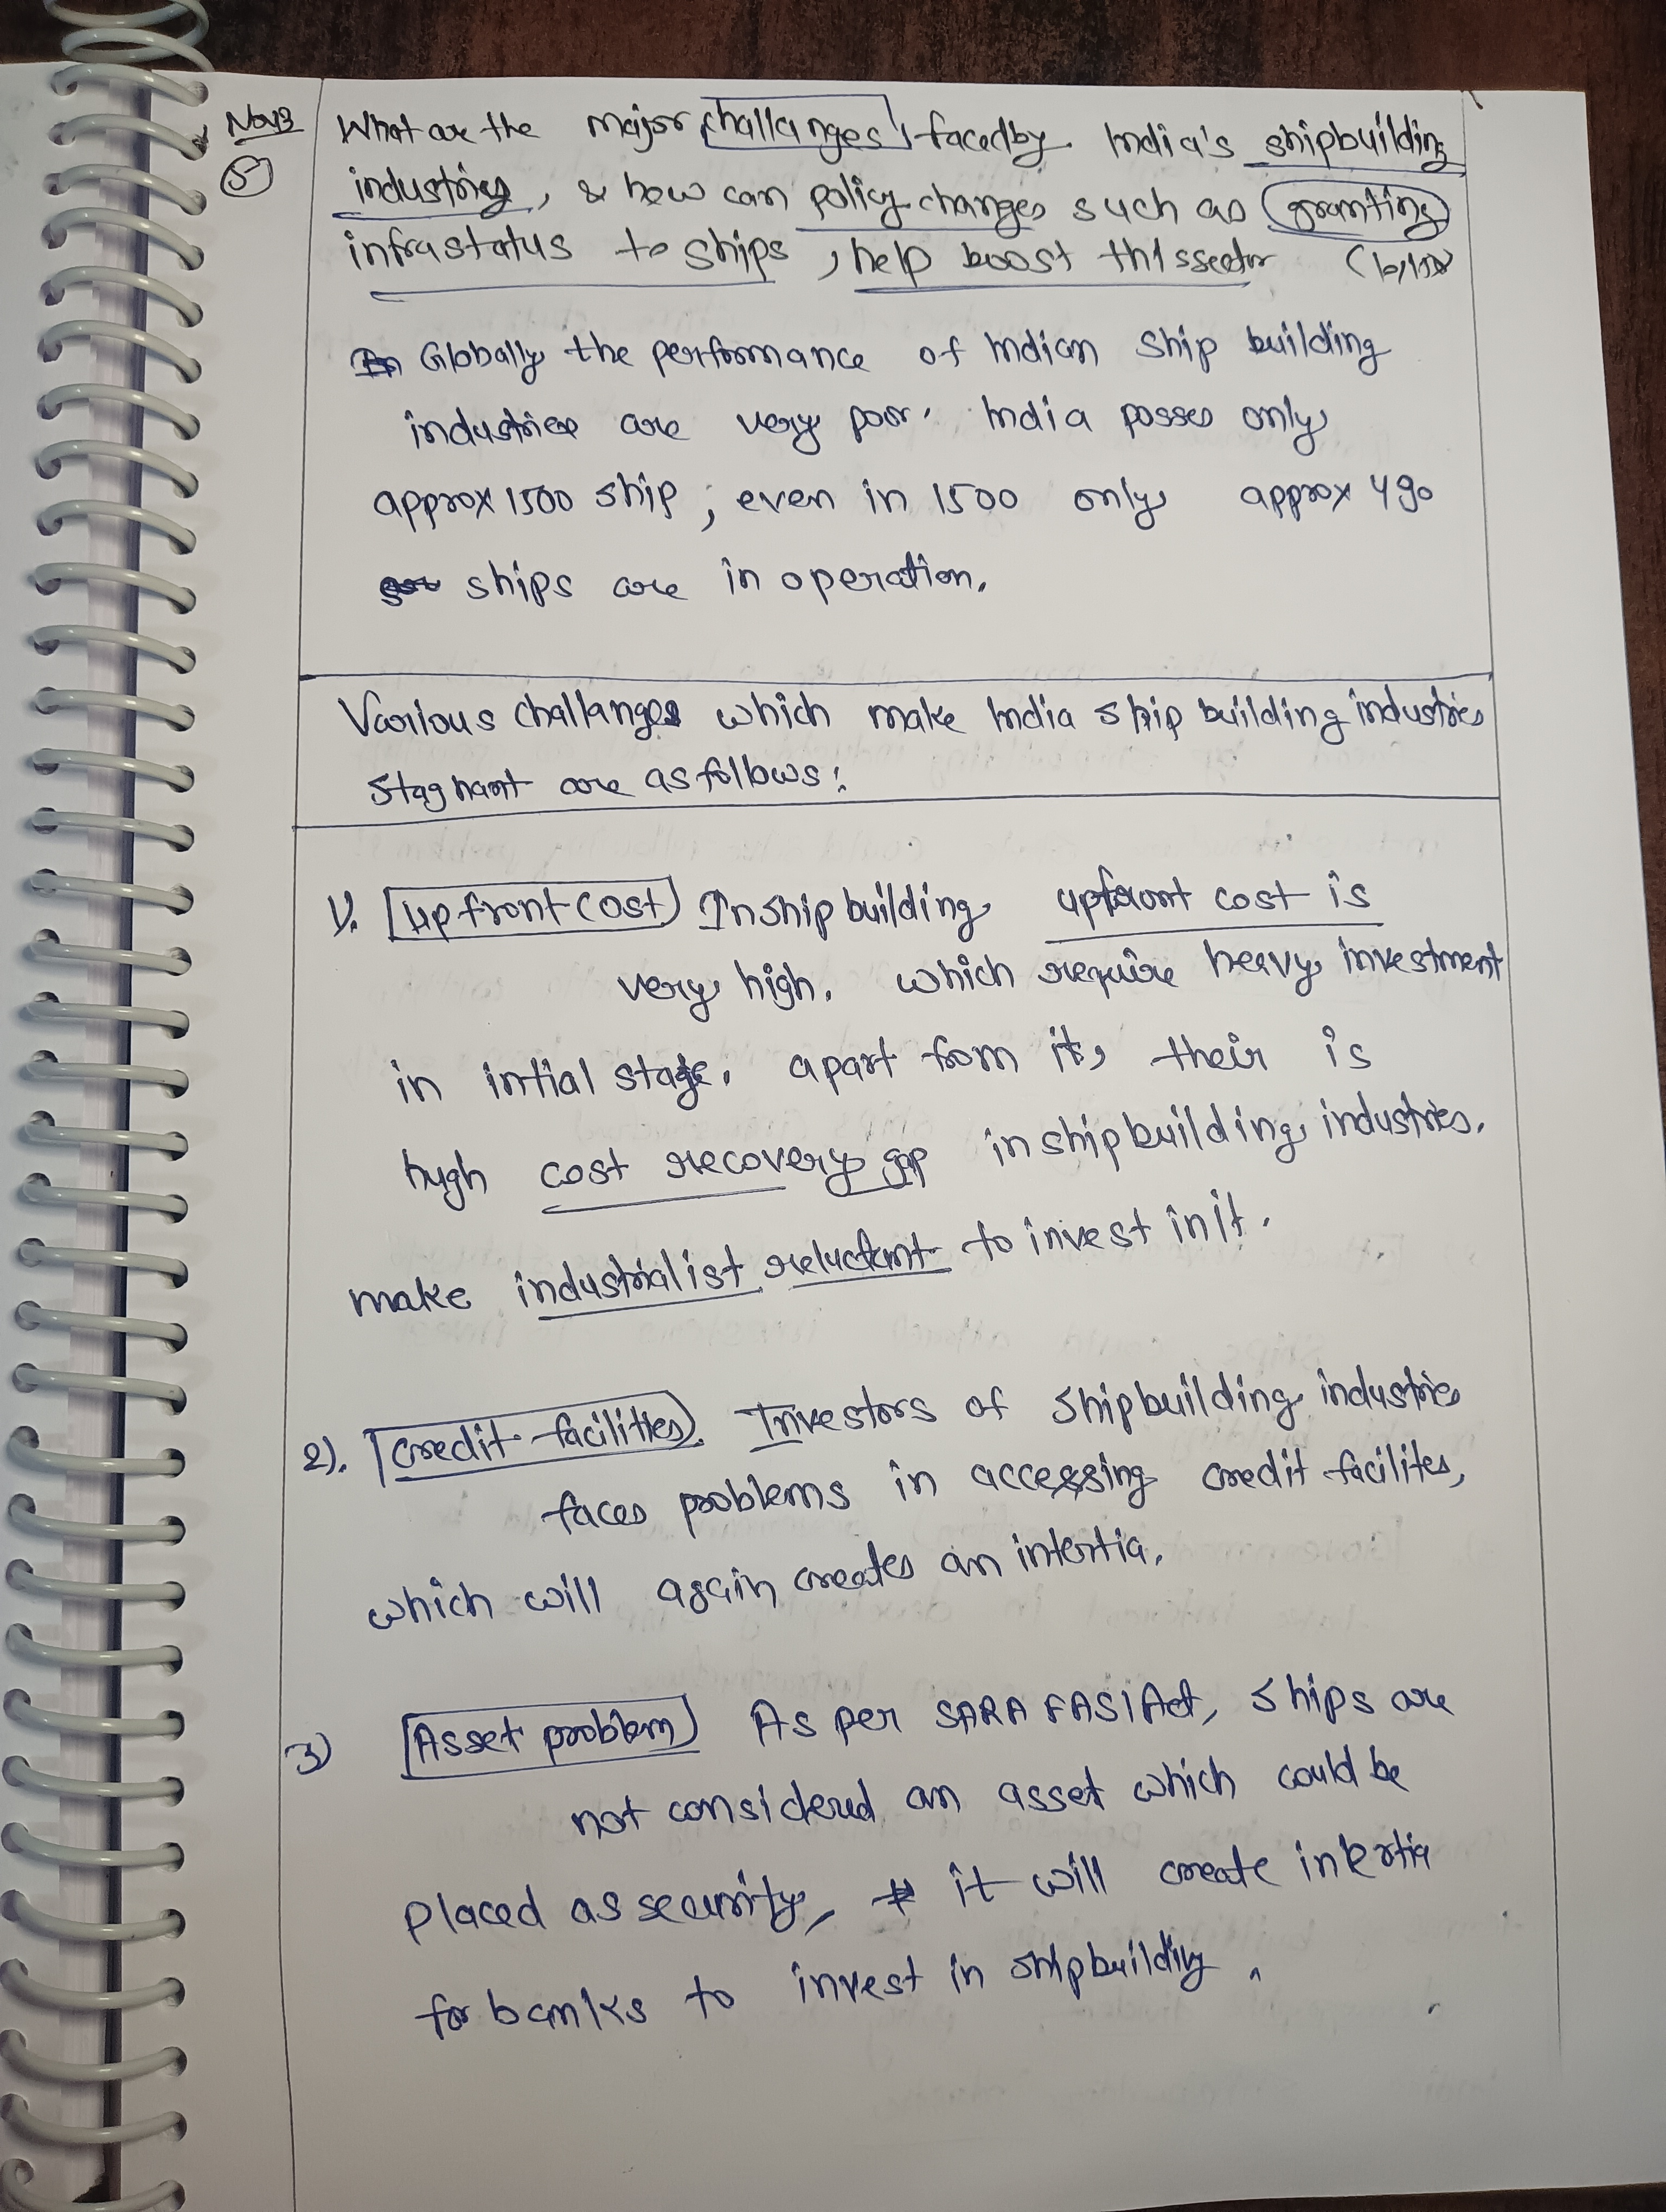 Nov 13
5
What are the major challanges, faced by India's shipbuilding
industries, & how can policy changes such as granting
infrastatus to ships, help boost this sector (10,150)
Globally the performance of Indian Ship building
industries are very poor. India posses only
approx 1500 ship, even in 1500 only approx 490
ships are in operation.
Various challanges which make India ship building industries
stagnant are as follows:
1). Upfront Cost In ship building upfront cost is
very high. which require heavy investment
in intial stage. apart from it, their is
high cost recovery gap in shipbuilding industries.
make industrialist reluctant to invest in it.
2). Credit facilities. Investors of shipbuilding industries
faces problems in accessing credit facilites,
which will again creates an intertia.
3) Asset problem As per SARAFASI Act, Ships are
not considered an asset which could be
placed as security, it will create intertia
for banks to invest in shipbuilding.